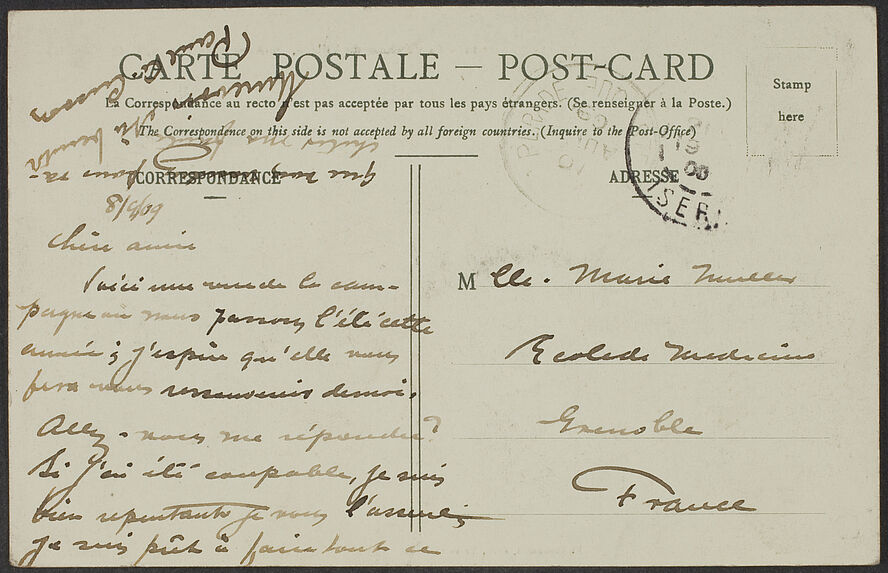 CARTE POSTALE — POST-CARD
La Correspondance au recto n'est pas acceptée par tous les pays étrangers. (Se renseigner à la Poste.)
The Correspondence on this side is not accepted by all foreign countries. (Inquire to the Post-Office)
Stamp
here
CORRESPONDANCE
ADRESSE
ISER
8/5/09
Chère amie
Voici une vue de la cam-
pagne où nous passons l'été cette
année; j'espère qu'elle vous
fera vous ressouvenir de moi.
Allez-vous me répondre?
Si j'ai été coupable, je suis
bien repentante je vous l'assure
je suis prêt à faire tout ce
que vous pour ra-
M lle. Marie Muller
Ecole de Medecine
Grenoble
France